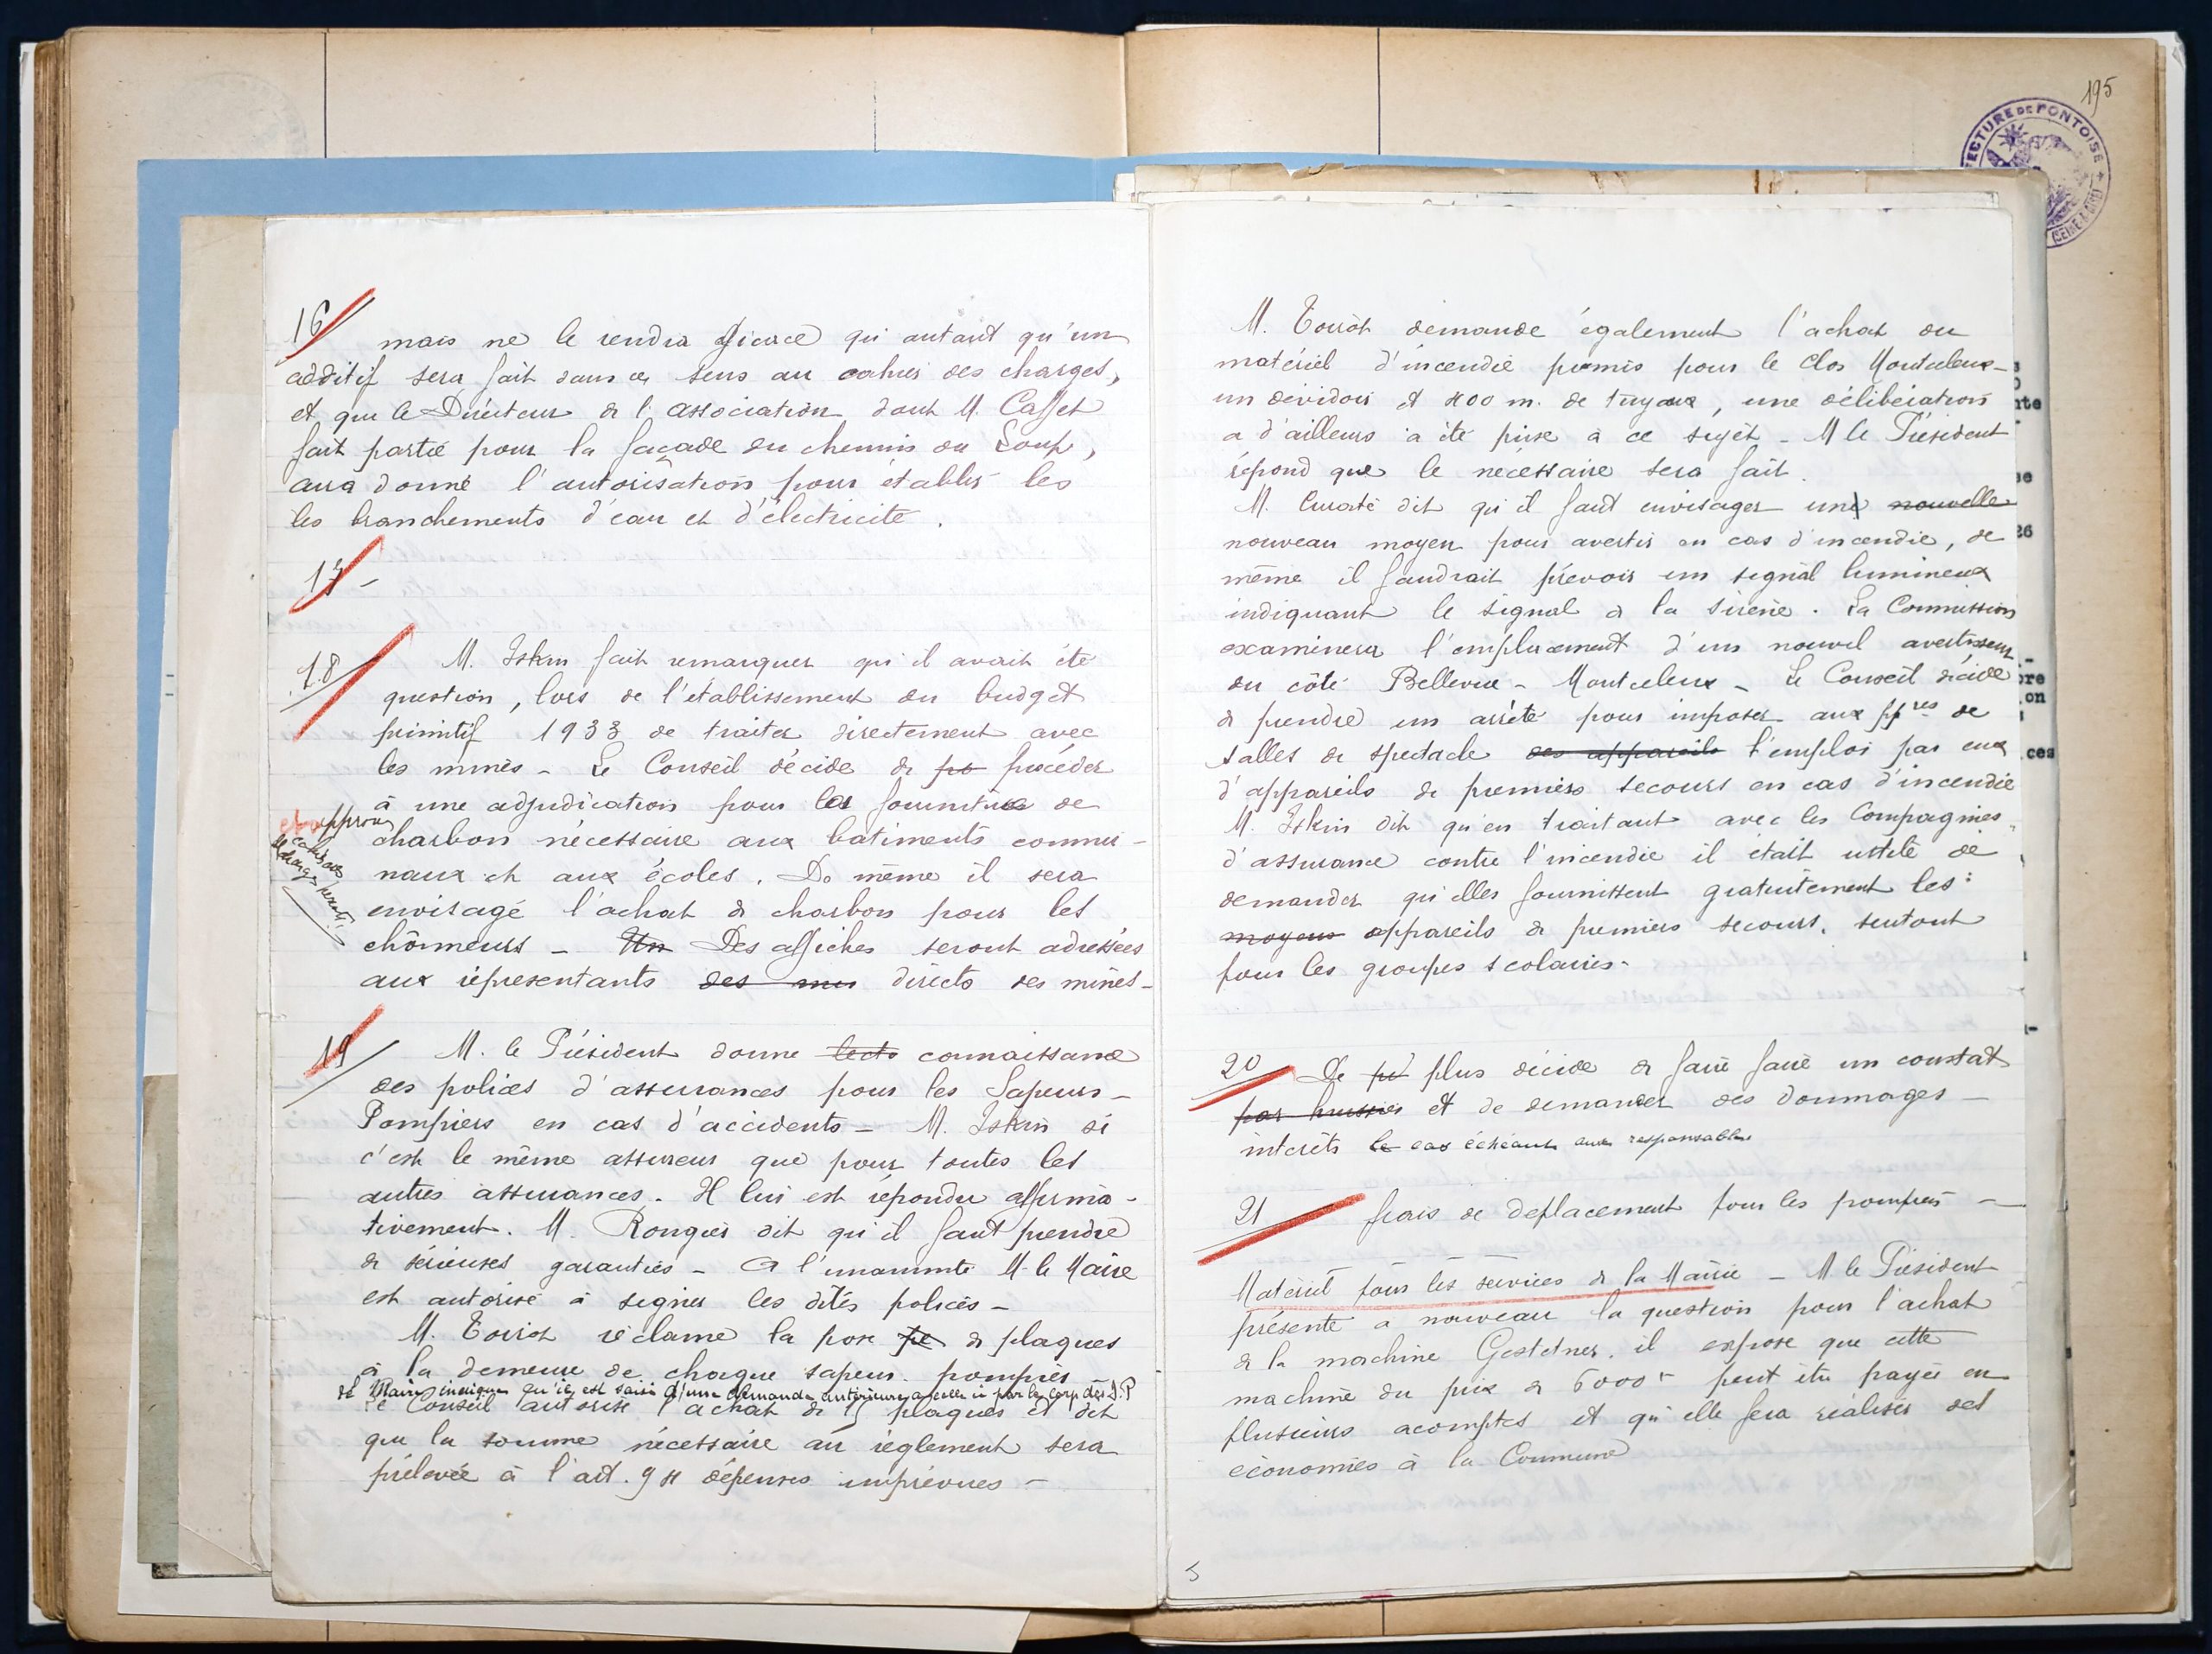 16
mais ne le rendra efficace qu'autant qu'un
additif sera fait dans ce sens au cahier des charges,
et que le Directeur de l'association dont M. Casset
fait partie pour la façade du chemin du Loup,
aura donné l'autorisation pour établir les
les branchements d'eau et d'électricité.
17 -
18
M. Iskin fait remarquer qu'il avait été
question, lors de l'établissement du budget
primitif 1933 de traiter directement avec
les mines - Le Conseil décide de po procéder
à une adjudication pour la fourniture de
et approuve
charbon nécessaire aux batiments commu-
cahier des
charges présenté
naux et aux écoles. De même il sera
envisagé l'achat de charbon pour les
chômeurs - Un Des affiches seront adressées
aux représentants des mi directs des mines -
19
M. le Président donne lect connaissance
des polices d'assurances pour les Sapeurs-
Pompiers en cas d'accidents - M. Iskin si
c'est le même assureur que pour toutes les
autres assurances. Il lui est répondu affirma-
tivement. M. Rougier dit qu'il faut prendre
de sérieuses garanties - A l'unanimité M. le Maire
est autorisé à signer les dites polices -
M. Toirot réclame la pose pe de plaques
à la demeure de chaque sapeur pompier
M. Maire indique qu'il est saisi d'une demande antérieure à celle-ci par le corps des S.P
Le Conseil autorise l'achat de 15 plaques et dit
que la somme nécessaire au règlement sera
prélevée à l'art. 94 dépenses imprévues -
195
SOUS-PREFECTURE DE PONTOISE
(SEINE-&-OISE)
M. Toirot demande également l'achat du
matériel d'incendie promis pour le Clos Montceleux -
un dévidoir et 400 m. de tuyaux, une délibération
a d'ailleurs a été prise à ce sujet - M le Président
répond que le nécessaire sera fait.
M. Curaté dit qu'il faut envisager une nouvelle
nouveau moyen pour avertir en cas d'incendie, de
même il faudrait prévoir un signal lumineux
indiquant le signal de la sirène. La Commission
examinera l'emplacement d'un nouvel avertisseur
du côté Bellevue - Montceleux - Le Conseil décide
de prendre un arrêté pour imposer aux ppres de
salles de spectacle des appareils l'emploi par eux
d'appareils de premiers secours en cas d'incendie
M. Iskin dit qu'en traitant avec les Compagnies
d'assurance contre l'incendie il était utile de
demander qu'elles fournissent gratuitement les
moyens appareils de premiers secours. surtout
pour les groupes scolaires -
20
De pl plus décide de faire faire un constat
par huissier et de demander des dommages -
intérêts le cas échéant aux responsables
21
frais de déplacement pour les pompiers -
Matériel pour les services de la Mairie - M le Président
présente à nouveau la question pour l'achat
de la machine Gestetner. il expose que cette
machine du prix de 6000 f peut être payée en
plusieurs acomptes et qu'elle fera réaliser des
économies à la Commune
5